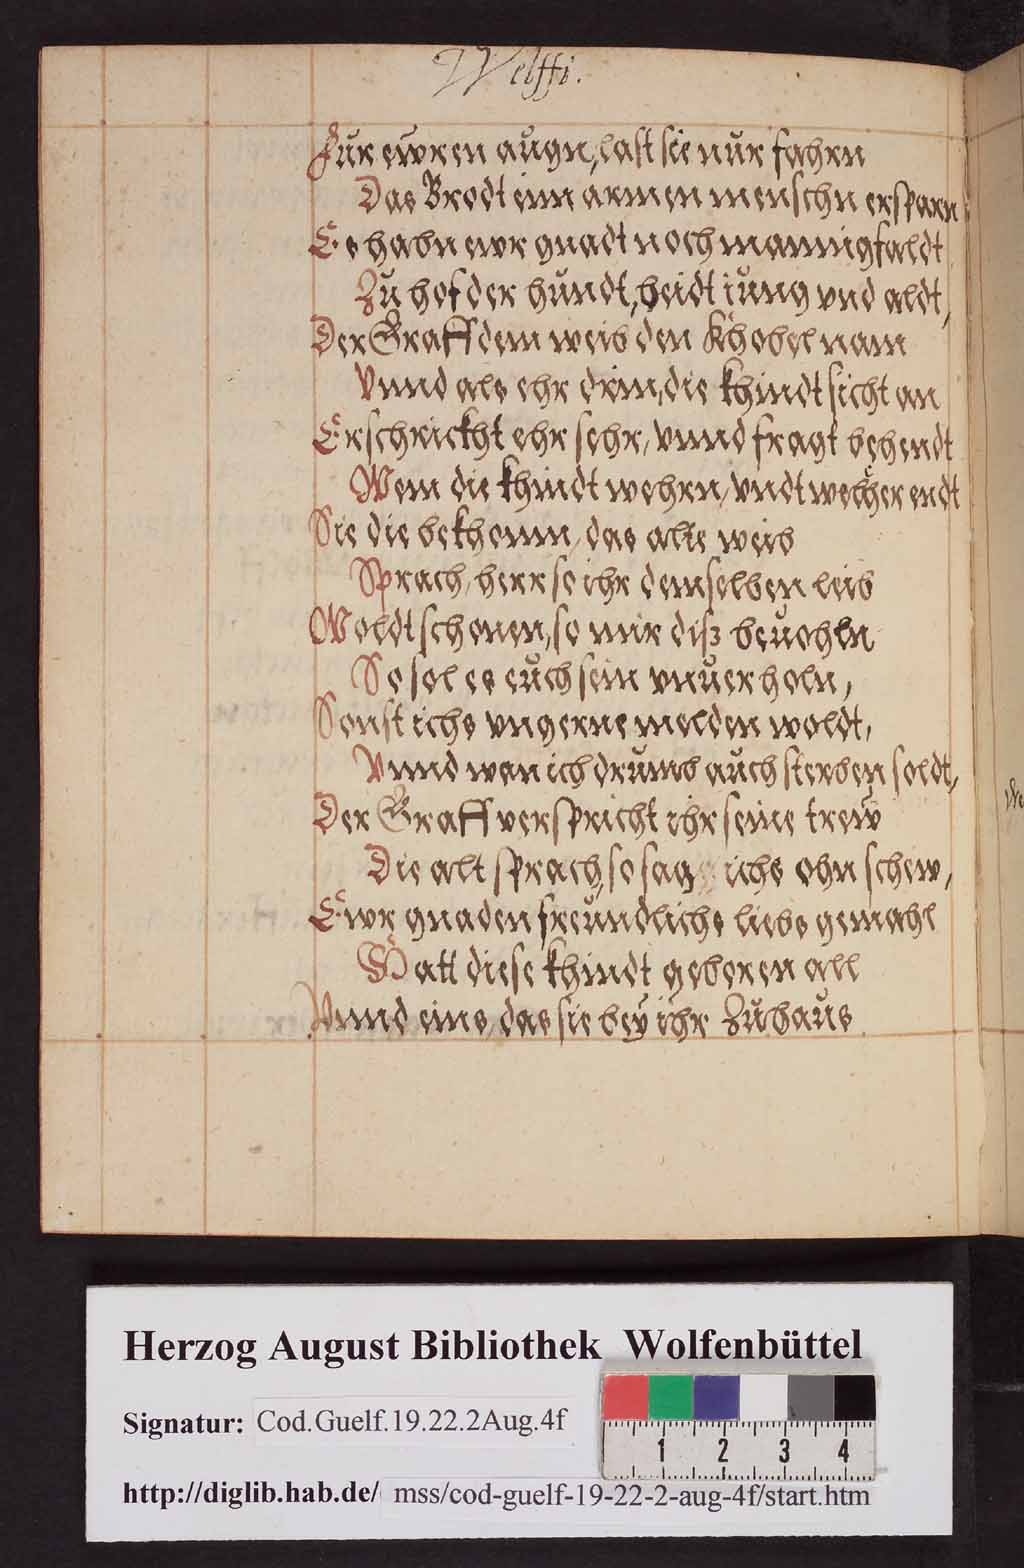 Welffi.
Für ewren augn, last sie nur fahrn
Das Brodt einn armen menschn ersparn
Es habn ewr gnadt noch mannigfaldt
Zu hof der hundt, beidt iung vnd aldt,
Der Graff dem weib den khobel nam
Vnnd als ehr drin, die khindt sicht an
Erschrickht ehr sehr, vnnd fragt behendt
Wem die khindt wehrn, vndt welcher endt
Sie die bekhomn, das alte weib
Sprach, herr so ihr demselben leib
Woldt schonen, so mir diß beuohln
So sol es euch sein vnuerholn,
Sonst ichs vngerne melden woldt,
Vnnd wan ich drumb auch sterben soldt,
Der Graff verspricht ihr seine trew
Die alt sprach, so sag ichs ohn schew,
Ewr gnaden freundliches liebs gemahl
Hatt diese khindt geboren all
Vnnd eins, das sie bey ihr Zuhaus
Herzog August Bibliothek Wolfenbüttel
Signatur: Cod.Guelf.19.22.2Aug.4f
1 2 3 4
http://diglib.hab.de/ mss/cod-guelf-19-22-2-aug-4f/start.htm